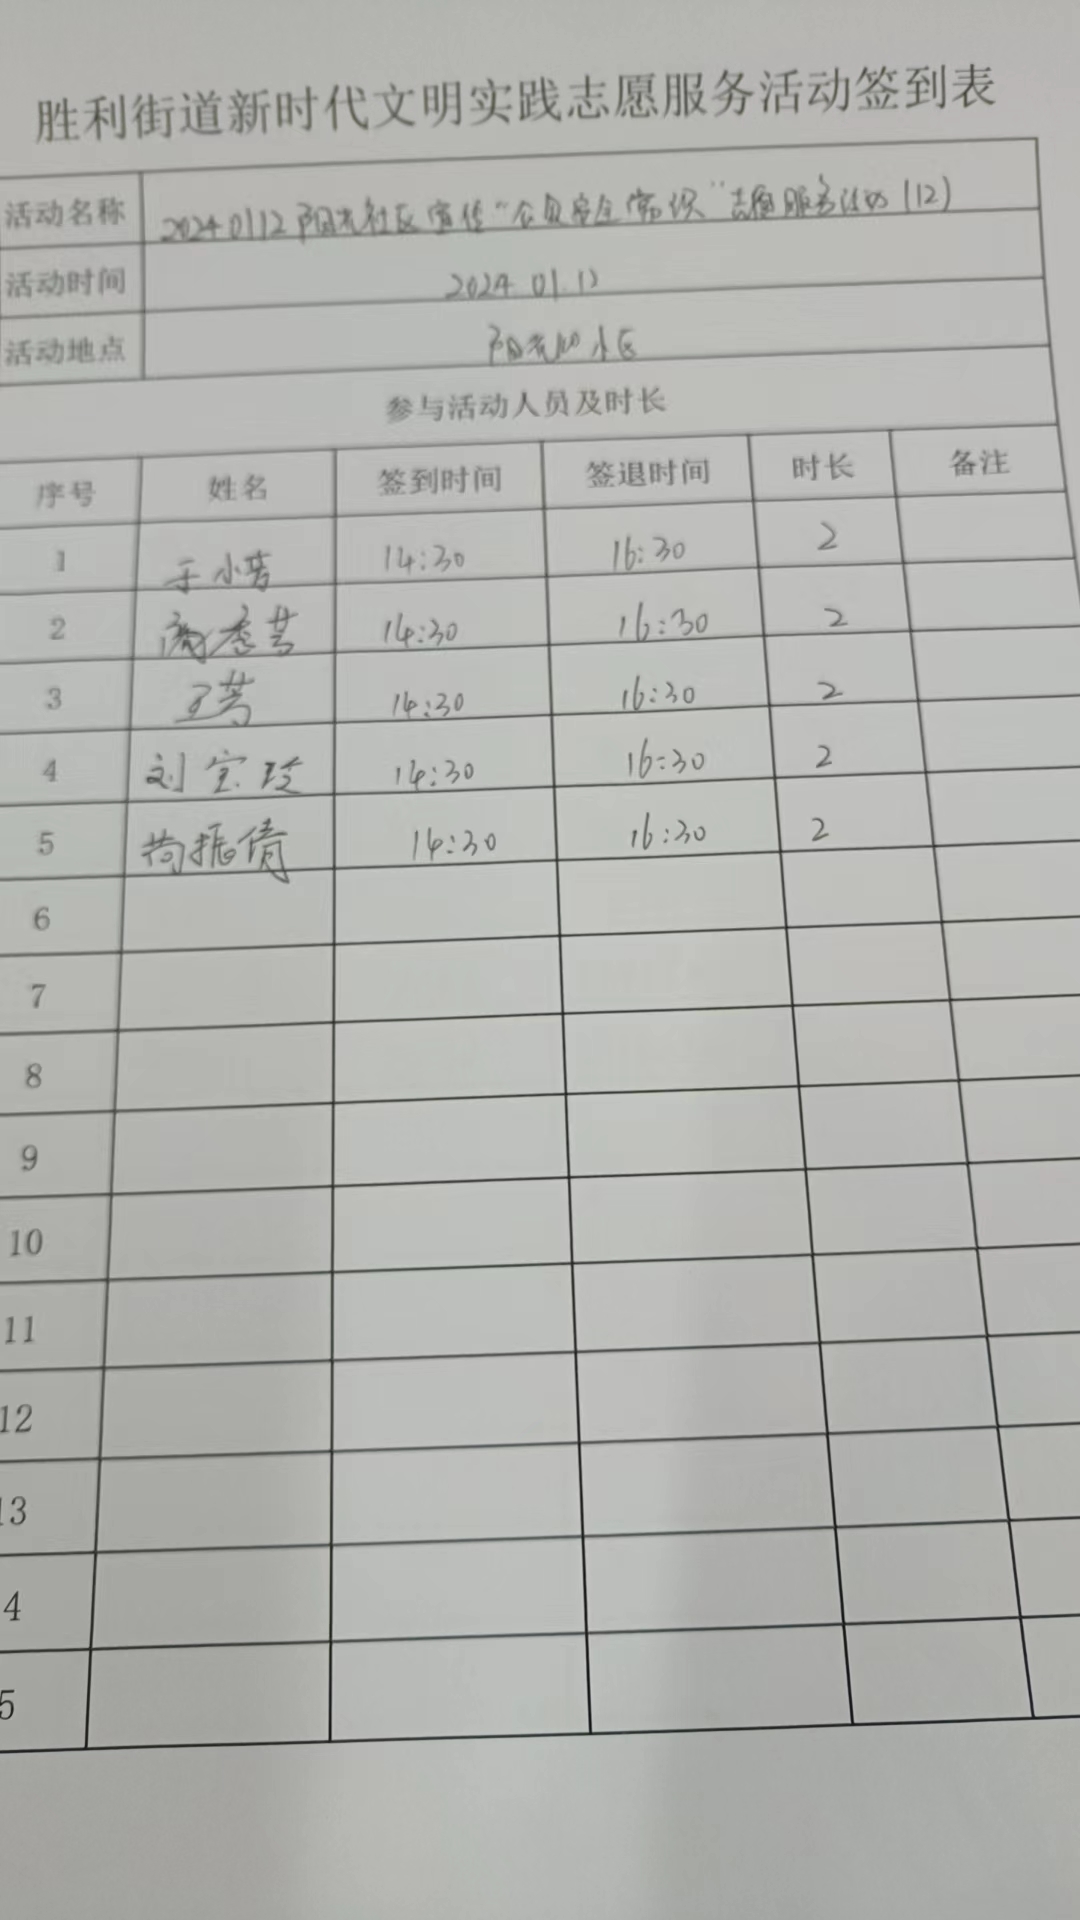 胜利街道新时代文明实践志愿服务活动签到表
活动名称 20240112阳光社区宣传“公众安全常识”志愿服务活动(12)
活动时间 2024.01.12
活动地点 阳光 小区
参与活动人员及时长
序号 姓名 签到时间 签退时间 时长 备注
1 于小芳 14:30 16:30 2
2 14:30 16:30 2
3 王芳 14:30 16:30 2
4 刘宝玲 14:30 16:30 2
5 苟振倩 14:30 16:30 2
6
7
8
9
10
11
12
13
4
5